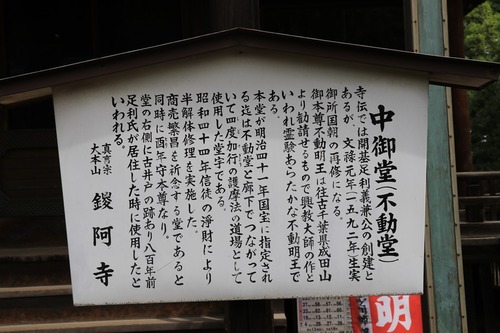 中御堂(不動堂)
寺伝では開基足利義兼公の創建と
あるが、文禄元年(一五九二年)生実
御所国朝の再修になる。
御本尊不動明王は往古千葉県成田山
より勧請せるもので興教大師の作と
いわれ霊験あらたかな不動明王で
ある。
本堂が明治四十一年国宝に指定され
る迄は不動堂と廊下でつながって
いて四度加行の護摩法の道場として
使用した堂宇である。
昭和四十四年信徒の浄財により
半解体修理を実施した。
商売繁昌を祈念する堂であると
同時に酉年守本尊なり。
堂の右側に古井戸の跡あり八百年前
足利氏が居住した時に使用したと
いわれる。
真言宗
大本山
鑁阿寺
明